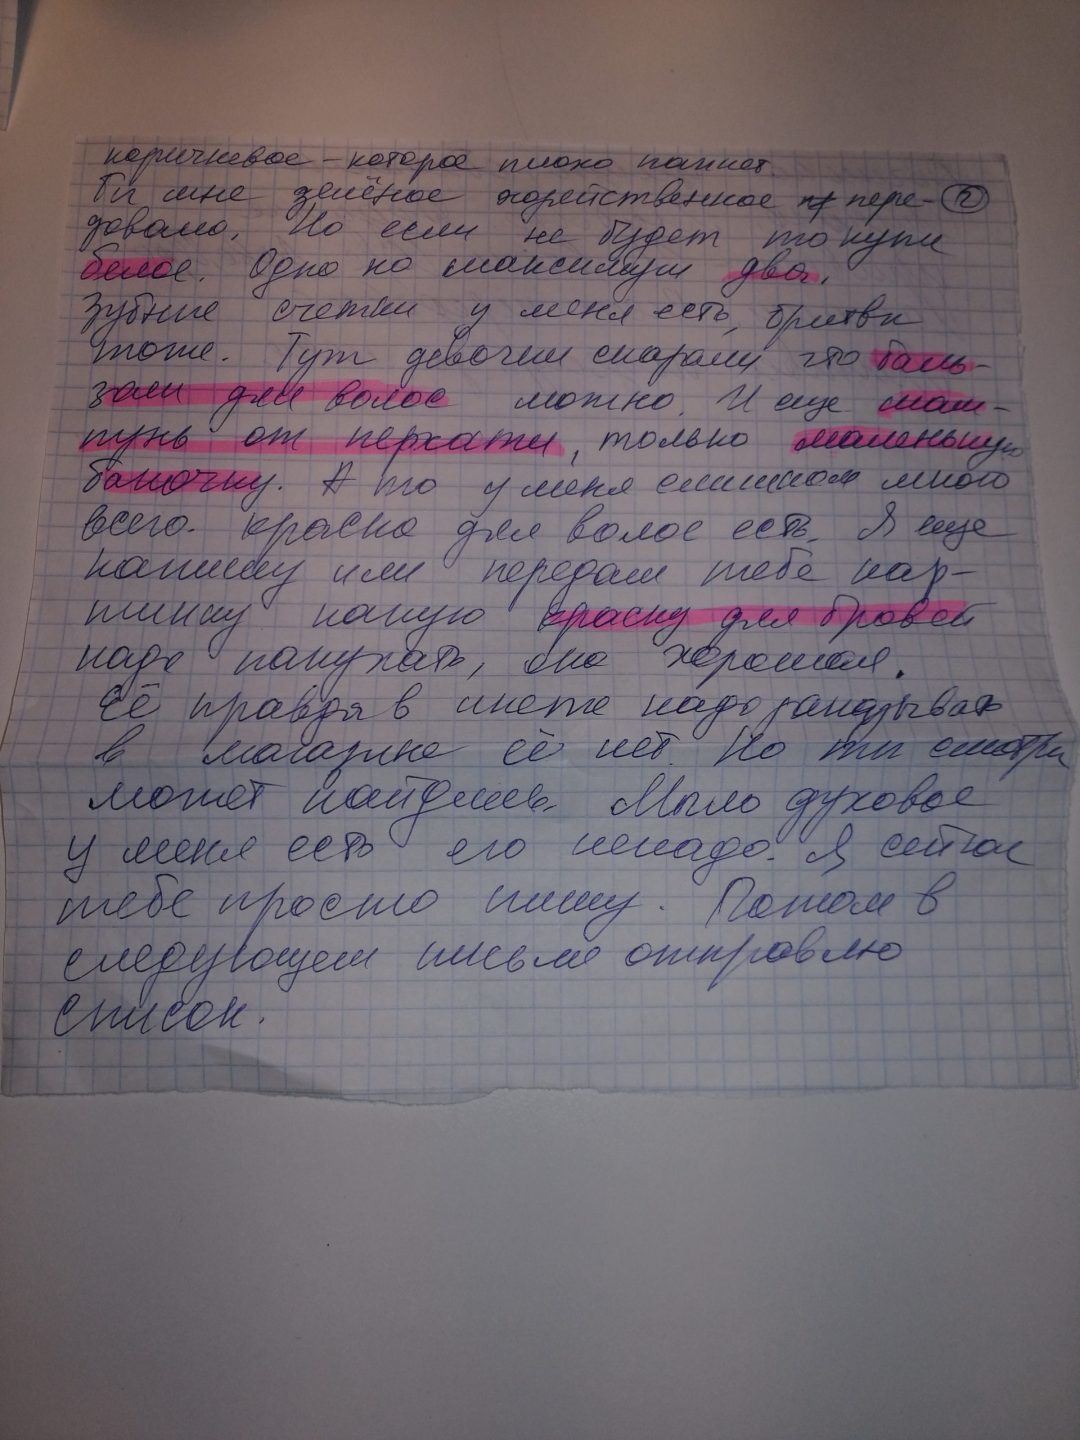 коричневое – которое плохо пахнет.
Ты мне зелёное хозяйственное пере- ②
довала. Но если не будет то купи
белое. Одно но максимум два.
Зубные счетки у меня есть, бритви
тоже. Тут девочки сказали что баль-
зам для волос можно. И еще шам-
пунь от перхати, только маленькую
баночку. А то у меня слишком много
всего. краска для волос есть. Я еще
напишу или передам тебе кар-
тинку какую краску для бровей
надо покупать, она хорошая.
Её правда в инете надо заказывать
в магазине её нет. Но ты смотри
может найдешь. Мыло духовое
у меня есть его ненадо. Я сейчас
тебе просто пишу. Потом в
следующем письме отправлю
список.